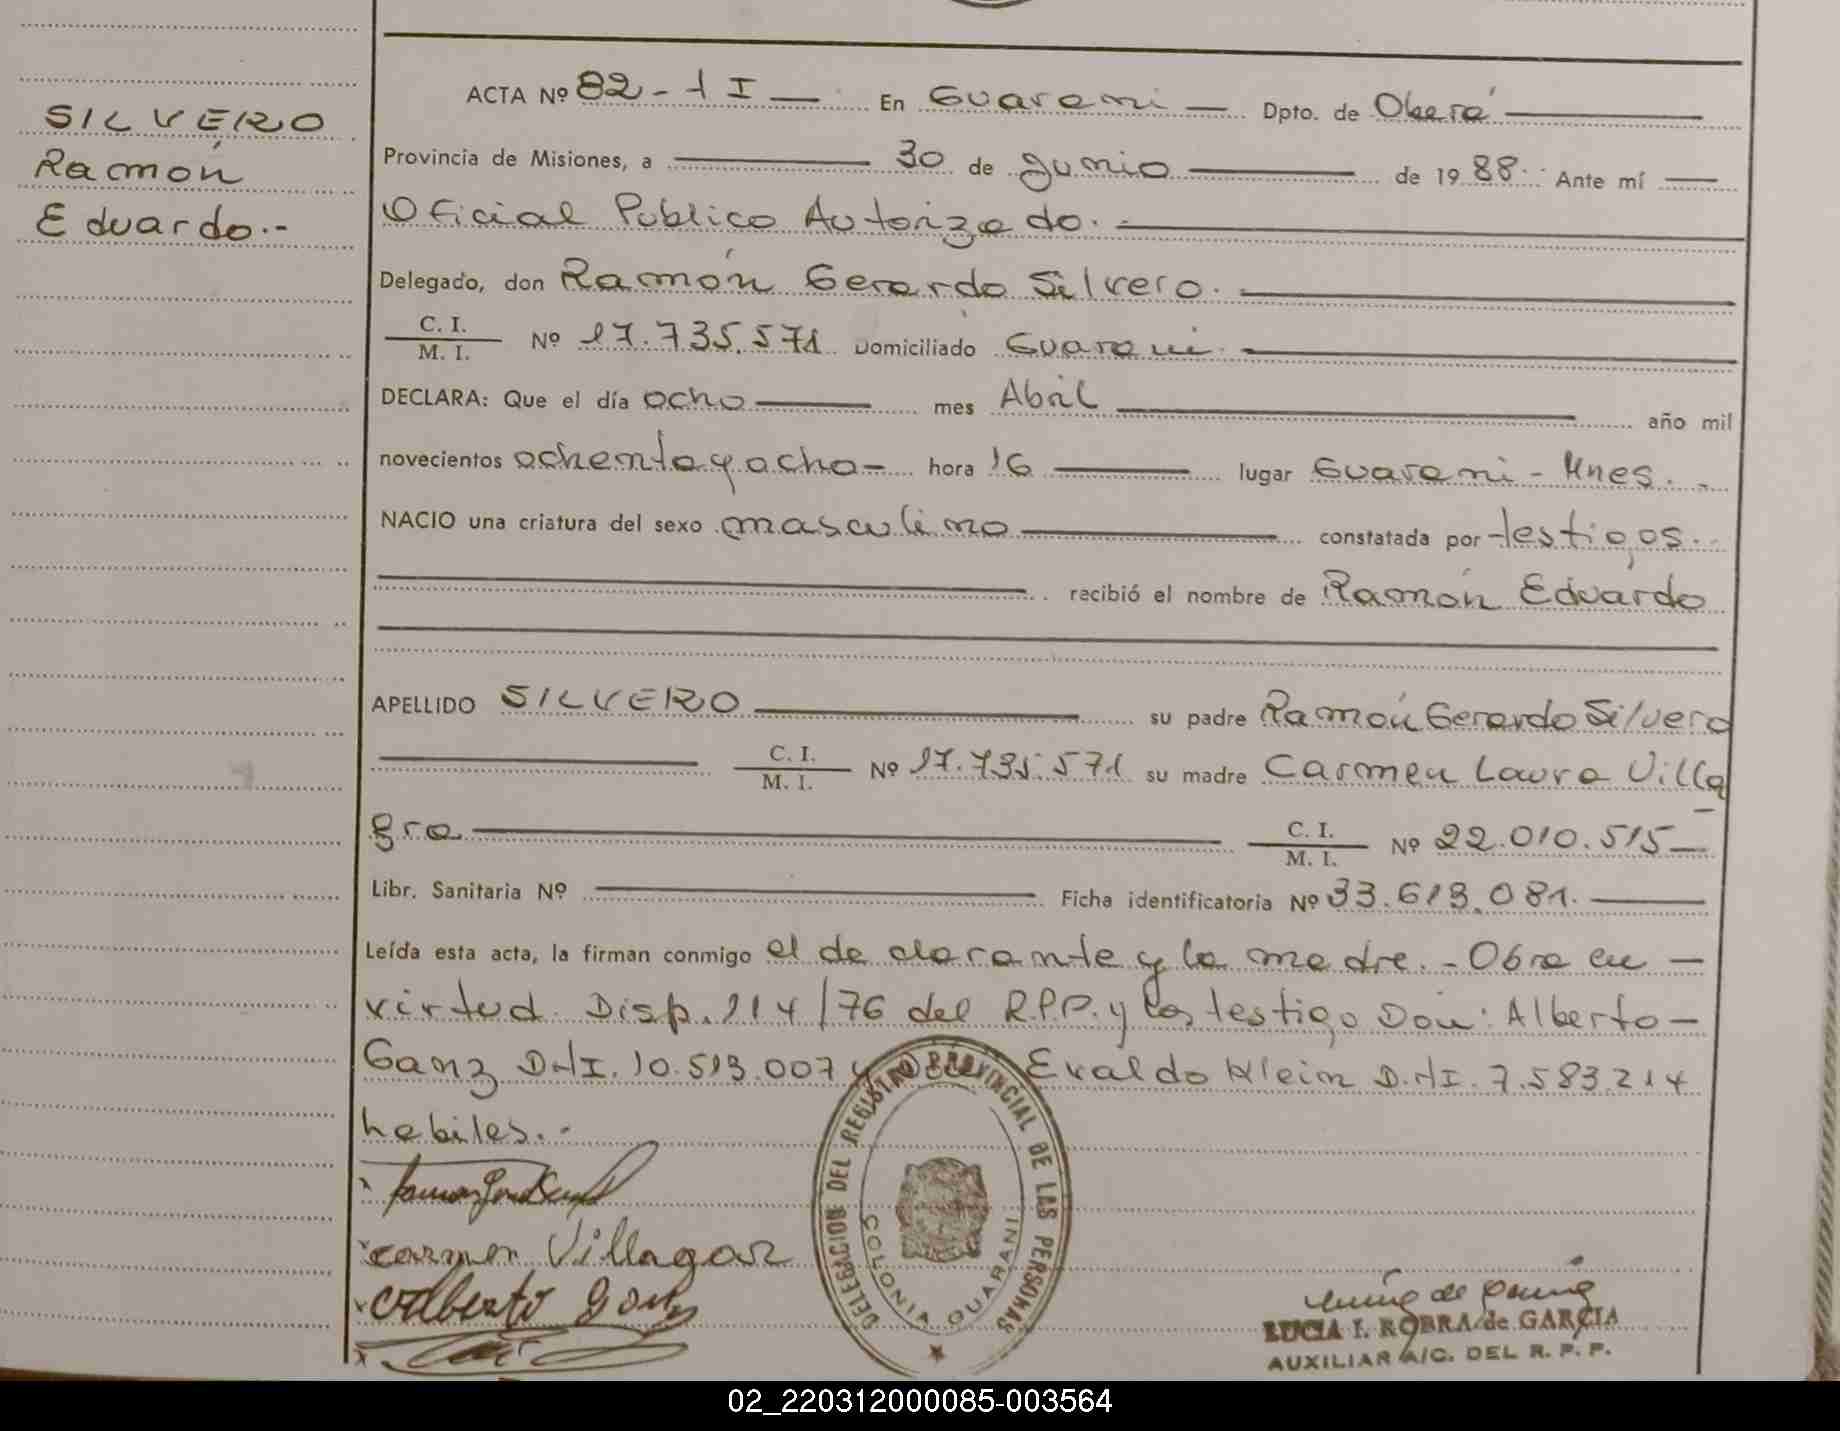 SILVERO
Ramón
Eduardo.-
ACTA Nº 82 - 1 I — En Guarani — Dpto. de Oberá
Provincia de Misiones, a 30 de Junio de 1988. Ante mí
Oficial Publico Autorizado.
Delegado, don Ramón Gerardo Silvero.
C. I.
M. I. Nº 17.735.571 Domiciliado Guarani.
DECLARA: Que el día ocho mes Abril año mil
novecientos ochenta y ocho hora 16 lugar Guarani - Mnes.
NACIO una criatura del sexo masculino constatada por testigos.
recibió el nombre de Ramón Eduardo
APELLIDO SILVERO su padre Ramón Gerardo Silvero
C. I.
M. I. Nº 17.735.571 su madre Carmen Laura Villa
gra C. I.
M. I. Nº 22.010.515
Libr. Sanitaria Nº Ficha identificatoria Nº 33.613.081.
Leída esta acta, la firman conmigo el declarante y la madre. - Obra en
virtud Disp. 114/76 del R.P.P. y los testigo Don: Alberto
Ganz D.N.I. 10.513.007 y Evaldo Klein D.N.I. 7.583.214
habiles.-
Carmen Villagar
Alberto Ganz
DELEGACION DEL REGISTRO PROVINCIAL DE LAS PERSONAS
COLONIA GUARANI
LUCIA I. ROBRA de GARCIA
AUXILIAR A/C. DEL R. P. P.
02_220312000085-003564